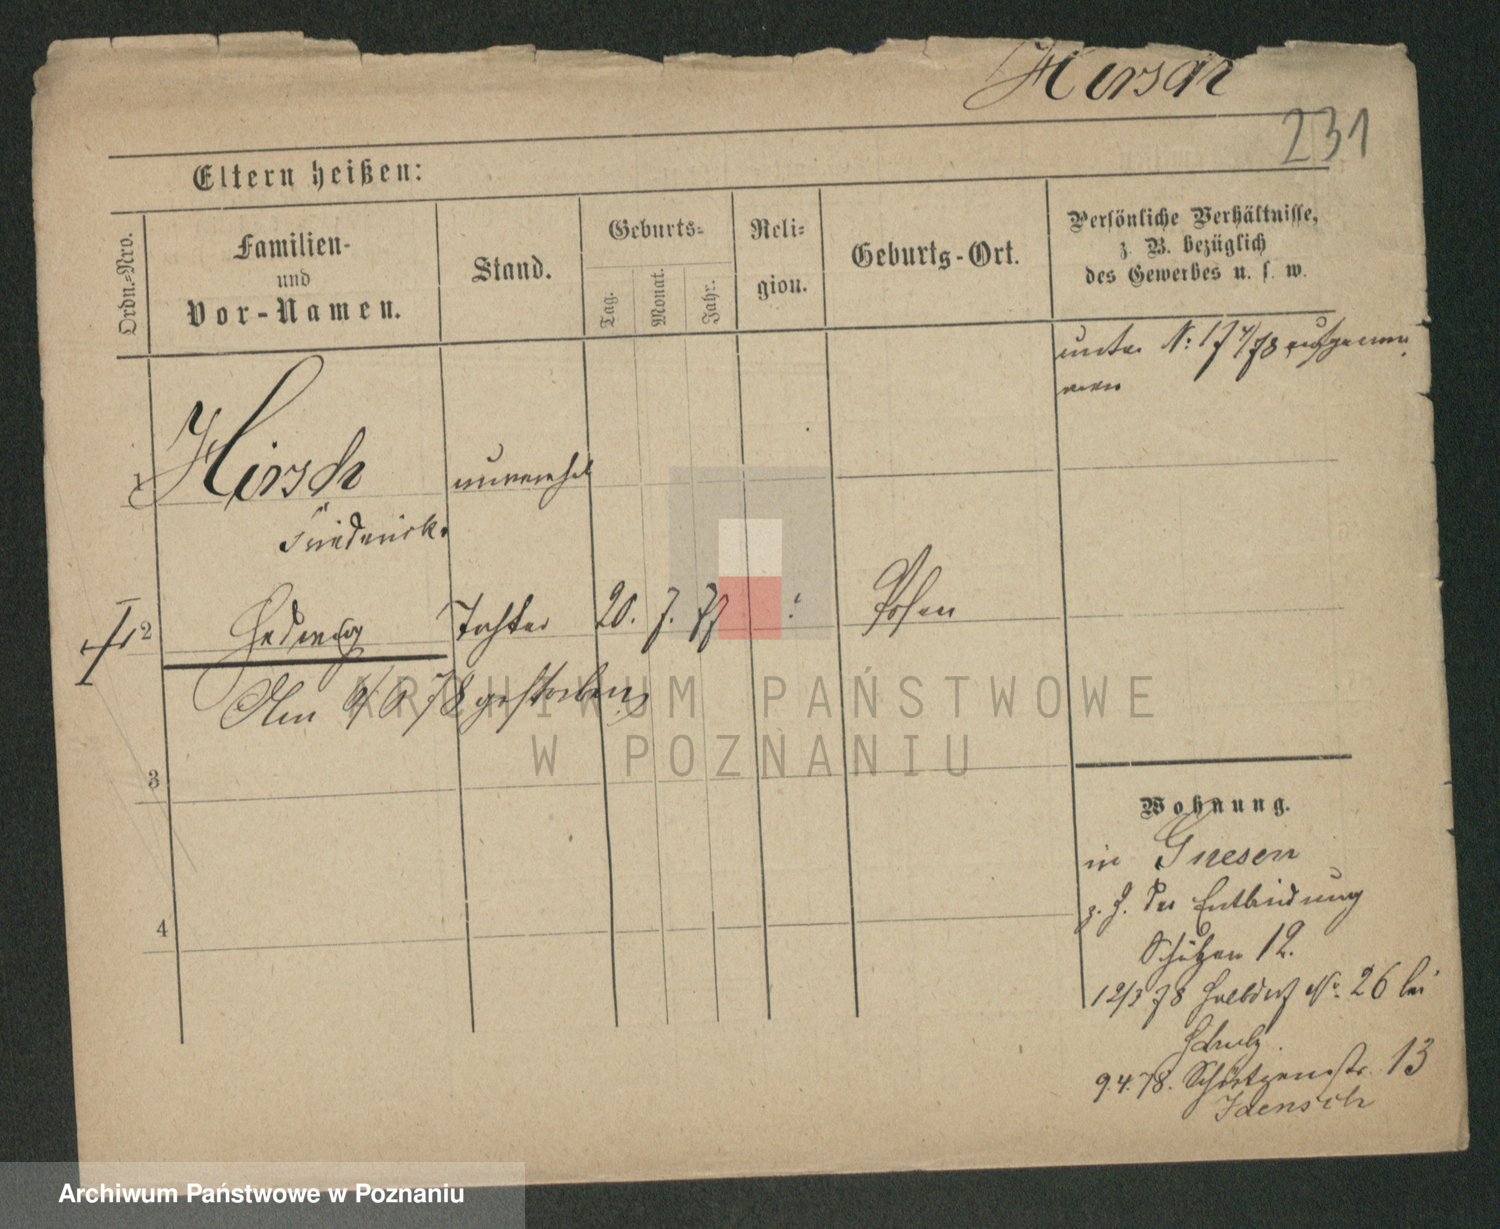 Hirsch
231
Eltern heißen:
Ordn.-Nro.
Familien-
und
Vor-Namen.
Stand.
Geburts-
Tag.
Monat.
Jahr.
Reli-
gion.
Geburts-Ort.
Persönliche Verhältnisse,
z. B. bezüglich
des Gewerbes u. s. w.
unter N: 174/78 aufgenom
men
1
Hirsch
unverehel
Friederike
2
Hedwig
Tochter
20.
7.
77
Posen
Am 6/6 78 gestorben
3
4
Wohnung.
in Gnesen
z. Z. der Entbindung
Schützen 12.
12/3 78 Halbdorf No. 26 bei
Schulz.
9.4.78. Schützenstr. 13
Jaensch
ARCHIWUM PAŃSTWOWE
W POZNANIU
Archiwum Państwowe w Poznaniu